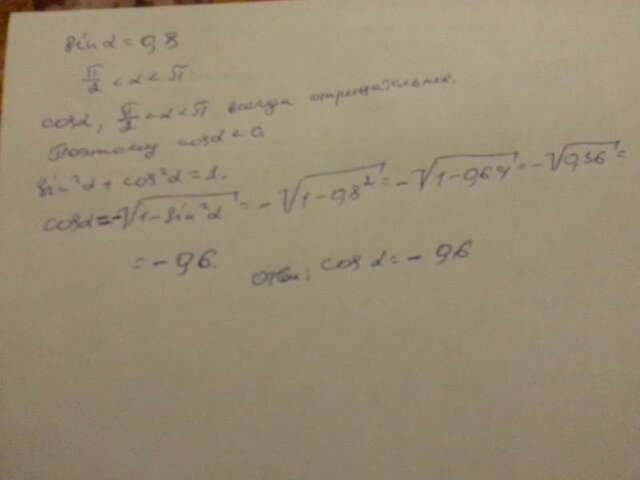 sin α = 0,8
π/2 < α < π
cos α, π/2 < α < π всегда отрицательнее.
Поэтому cos α < 0.
sin²α + cos²α = 1.
cos α = -√(1 - sin²α) = -√(1 - 0,8²) = -√(1 - 0,64) = -√0,36 =
= -0,6. Ответ: cos α = -0,6